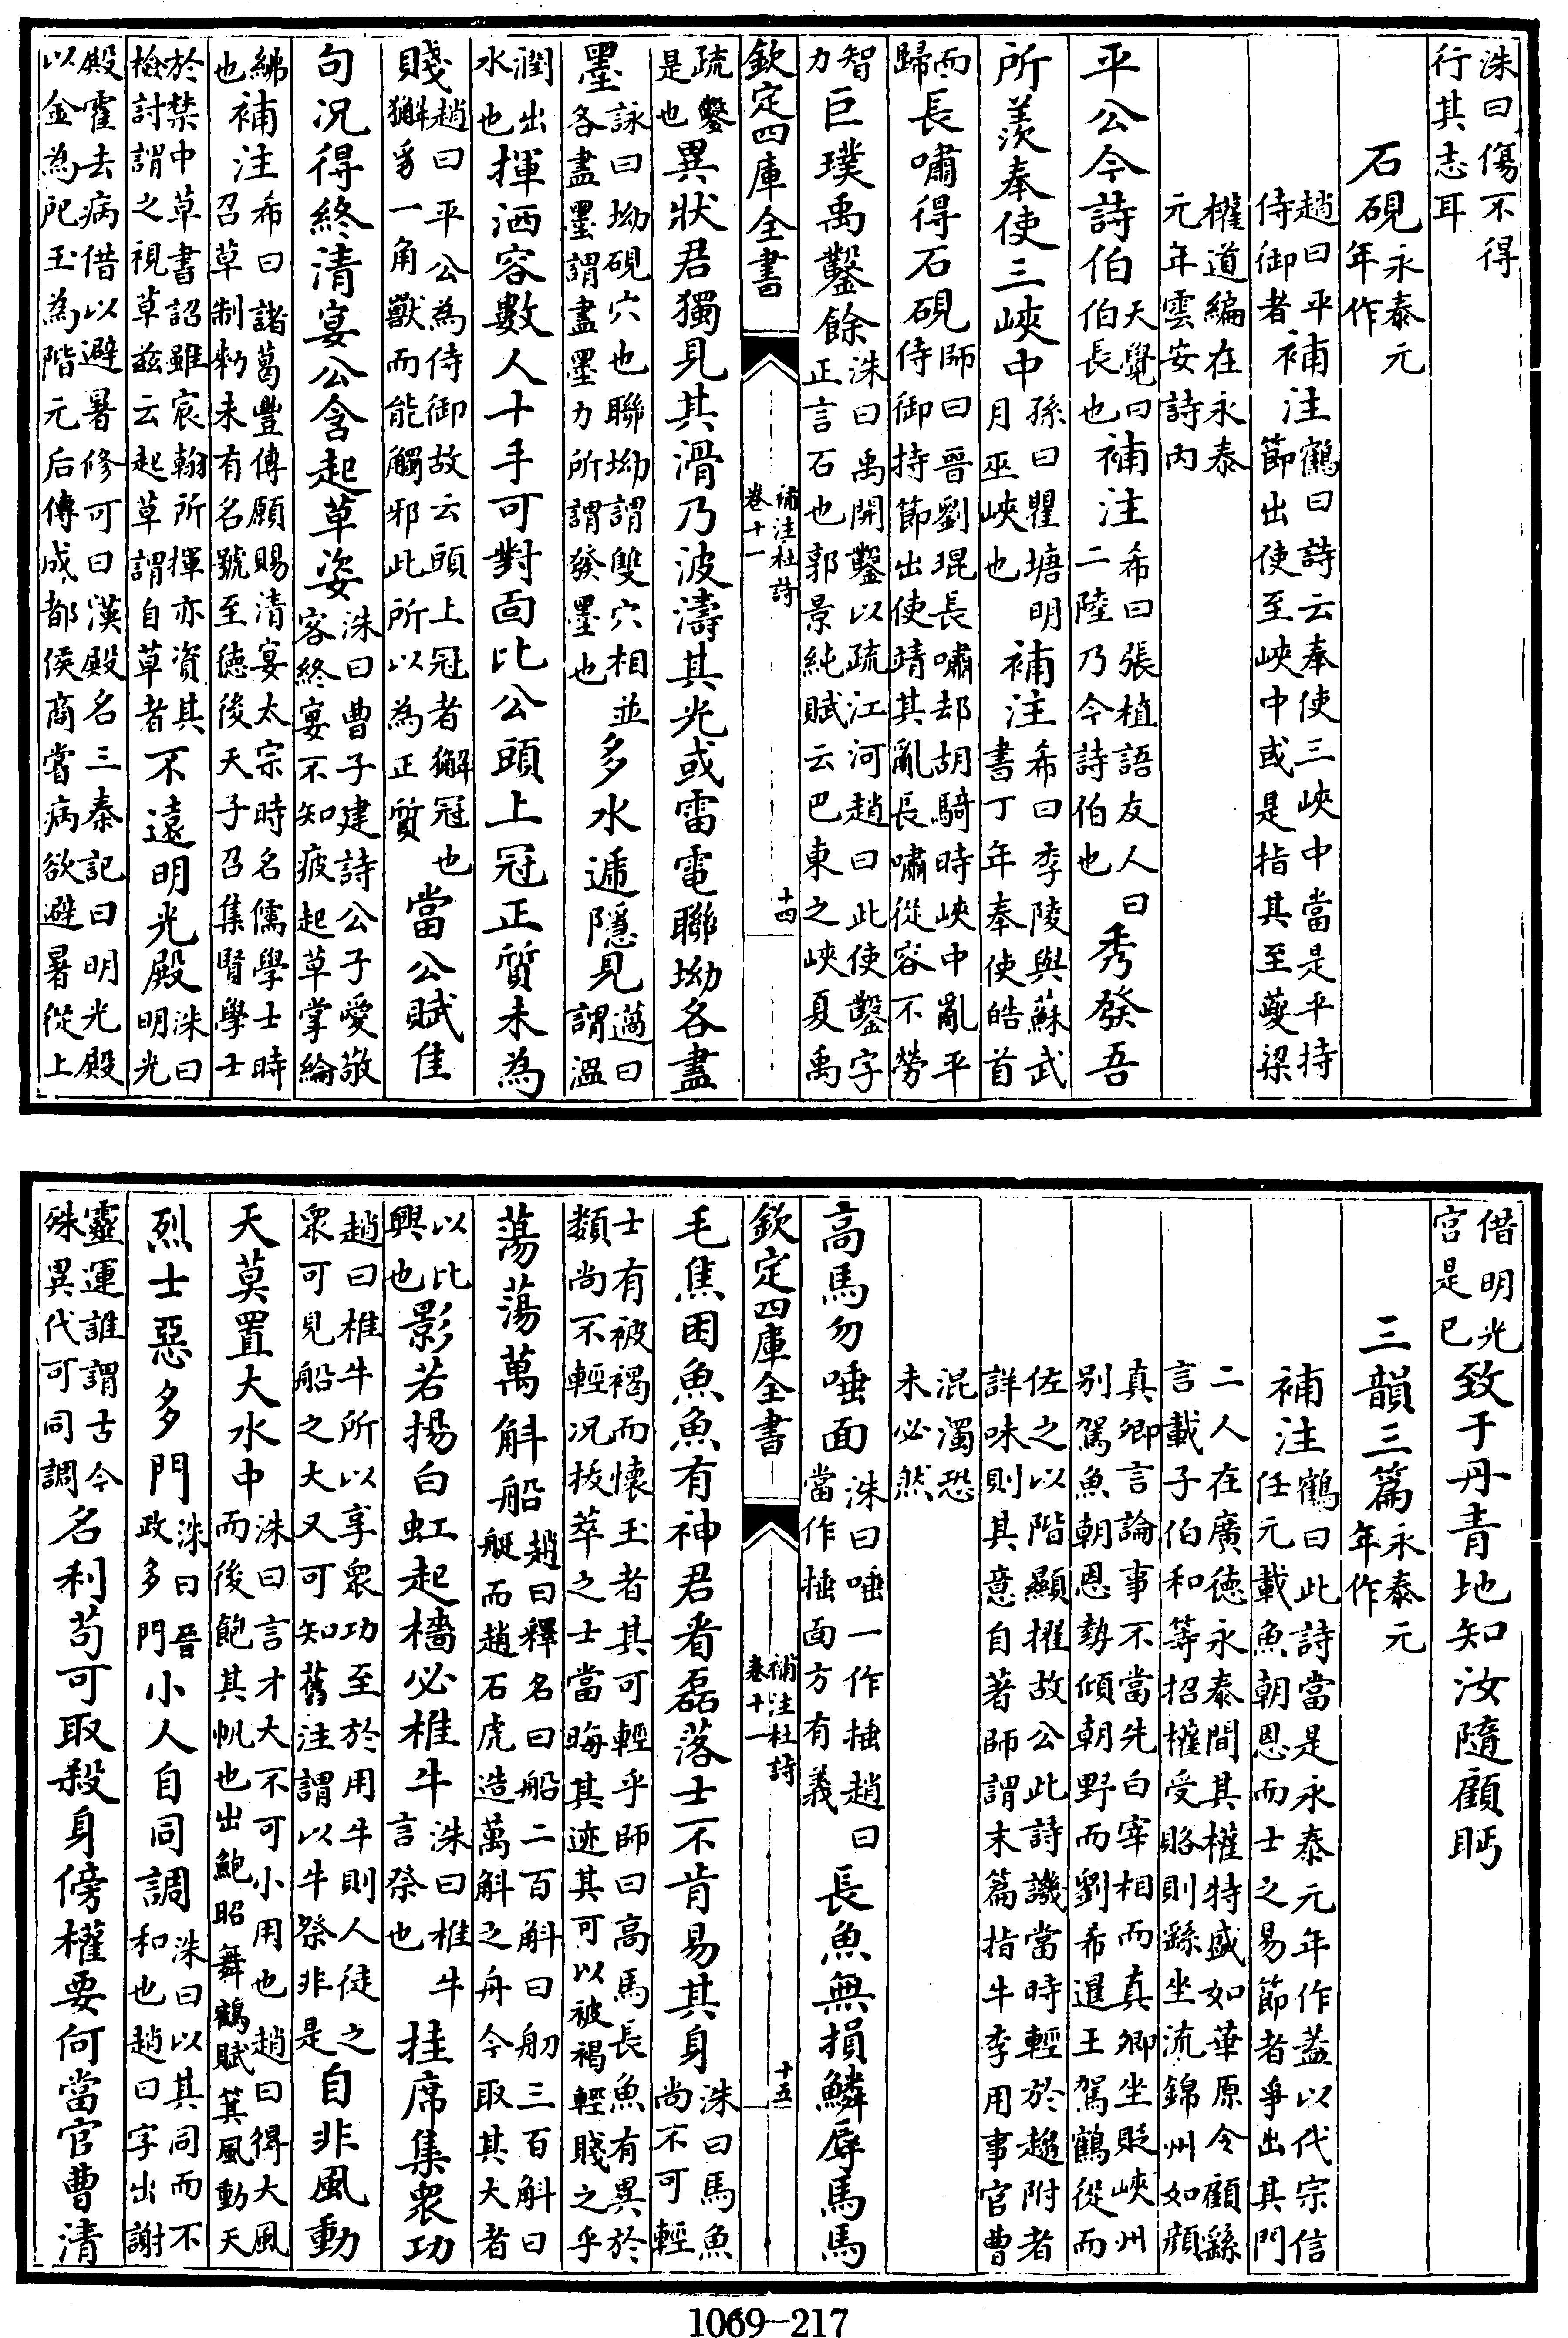 洙曰傷不得
行其志耳
石硯永泰元
年作
趙曰平補注鶴曰詩云奉使三峽中當是平持
侍御者節出使至峽中或是指其至夔梁
權道編在永泰
元年雲安詩内
平公今詩伯天覺曰伯長也補注希曰張植語友人曰二陸乃今詩伯也秀發吾
所羨奉使三峽中孫曰瞿塘明月巫峽也補注希曰李陵與蘇武書丁年奉使皓首
而歸長嘯得石硯師曰晉劉琨長嘯却胡騎時峽中亂平侍御持節出使靖其亂長嘯從容不勞
智力巨璞禹鑿餘洙曰禹開鑿以疏江河趙曰此使鑿字正言石也郭景純賦云巴東之峽夏禹
欽定四庫全書
補注杜詩
卷十一
十四
疏鑿是也異狀君獨見其滑乃波濤其光或雷電聯坳各盡
墨詠曰坳硯穴也聯坳謂雙穴相並各盡墨謂盡墨力所謂發墨也多水遞隱見邁曰謂溫
潤出水也揮洒容數人十手可對面比公頭上冠正質未為
賤趙曰平公為侍御故云頭上冠者獬冠也獬豸一角獸而能觸邪此所以為正質當公賦佳
句况得終清宴公含起草姿洙曰曹子建詩公子愛敬客終宴不知疲起草掌綸
綍也補注希曰諸葛豐傳願賜清宴太宗時名儒學士時召草制勅未有名號至德後天子召集賢學士
於禁中草書詔雖宸翰所揮亦資其檢討謂之視草兹云起草謂自草者不遠明光殿洙曰明光
殿霍去病借以避暑修可曰漢殿名三秦記曰明光殿以金為戺玉為階元后傳成都侯商嘗病欲避暑從上
借明光宮是已致于丹青地知汝隨顧眄
三韻三篇永泰元
年作
補注鶴曰此詩當是永泰元年作蓋以代宗信任元載魚朝恩而士之易節者爭出其門
二人在廣德永泰間其權特盛如華原令顧繇言載子伯和等招權受賂則繇坐流錦州如顔
真卿言論事不當先白宰相而真卿坐貶峽州别駕魚朝恩勢傾朝野而劉希暹王駕鶴從而
佐之以階顯擢故公此詩譏當時輕於趨附者詳味則其意自著師謂末篇指牛李用事官曹
混濁恐
未必然
高馬勿唾面洙曰唾一作捶趙曰當作捶面方有義長魚無損鱗辱馬馬
欽定四庫全書
補注杜詩
卷十一
十五
毛焦困魚魚有神君看磊落士不肯易其身洙曰馬魚尚不可輕
士有被褐而懷玉者其可輕乎師曰高馬長魚有異於類尚不輕况拔萃之士當晦其迹其可以被褐輕賤之乎
蕩蕩萬斛船趙曰釋名曰船二百斛曰舠三百斛曰艇而趙石虎造萬斛之舟今取其大者
以比興也影若揚白虹起檣必椎牛洙曰椎牛言祭也挂席集衆功
趙曰椎牛所以享衆功至於用牛則人徒之衆可見船之大又可知舊注謂以牛祭非是自非風動
天莫置大水中洙曰言才大不可小用也趙曰得大風而後飽其帆也出鮑昭舞鶴賦箕風動天
烈士惡多門洙曰晉政多門小人自同調洙曰以其同而不和也趙曰字出謝
靈運誰謂古今殊異代可同調名利苟可取殺身傍權要何當官曹清
1069-217